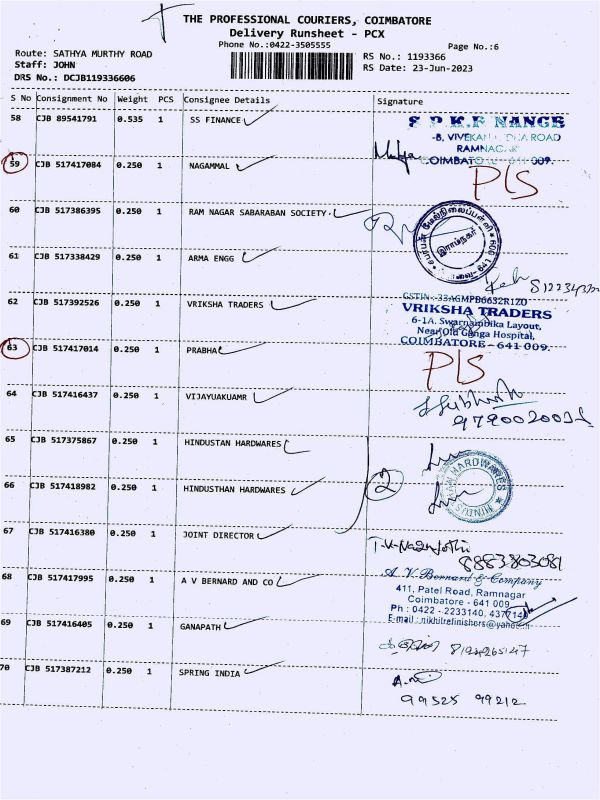 THE PROFESSIONAL COURIERS, COIMBATORE
Delivery Runsheet - PCX
Phone No.:0422-3505555
Page No.:6
Route: SATHYA MURTHY ROAD
Staff: JOHN
DRS No.: DCJB119336606
RS No.: 1193366
RS Date: 23-Jun-2023
S No Consignment No Weight PCS Consignee Details Signature
58 CJB 89541791 0.535 1 SS FINANCE
S P K F NANCE
-B, VIVEKAN ROAD
RAMNAGAR
COIMBATO 641 009.
59 CJB 517417084 0.250 1 NAGAMMAL
PLS
60 CJB 517386395 0.250 1 RAM NAGAR SABARABAN SOCIETY.
61 CJB 517338429 0.250 1 ARMA ENGG
62 CJB 517392526 0.250 1 VRIKSHA TRADERS
GSTIN:-33AGMPB6632R1Z0
VRIKSHA TRADERS
6-1A. Swarnambika Layout,
Near Old Ganga Hospital,
COIMBATORE - 641 009.
63 CJB 517417014 0.250 1 PRABHA
PLS
64 CJB 517416437 0.250 1 VIJAYUAKUAMR
65 CJB 517375867 0.250 1 HINDUSTAN HARDWARES
2
66 CJB 517418982 0.250 1 HINDUSTHAN HARDWARES
67 CJB 517416380 0.250 1 JOINT DIRECTOR
8883803081
68 CJB 517417995 0.250 1 A V BERNARD AND CO
A. V. Bernard & Company
411, Patel Road, Ramnagar
Coimbatore - 641 009
Ph : 0422 - 2233140, 4377140
E-mail : nikhilrefinishers@yahoo.in
69 CJB 517416405 0.250 1 GANAPATH
70 CJB 517387212 0.250 1 SPRING INDIA
99525 99212